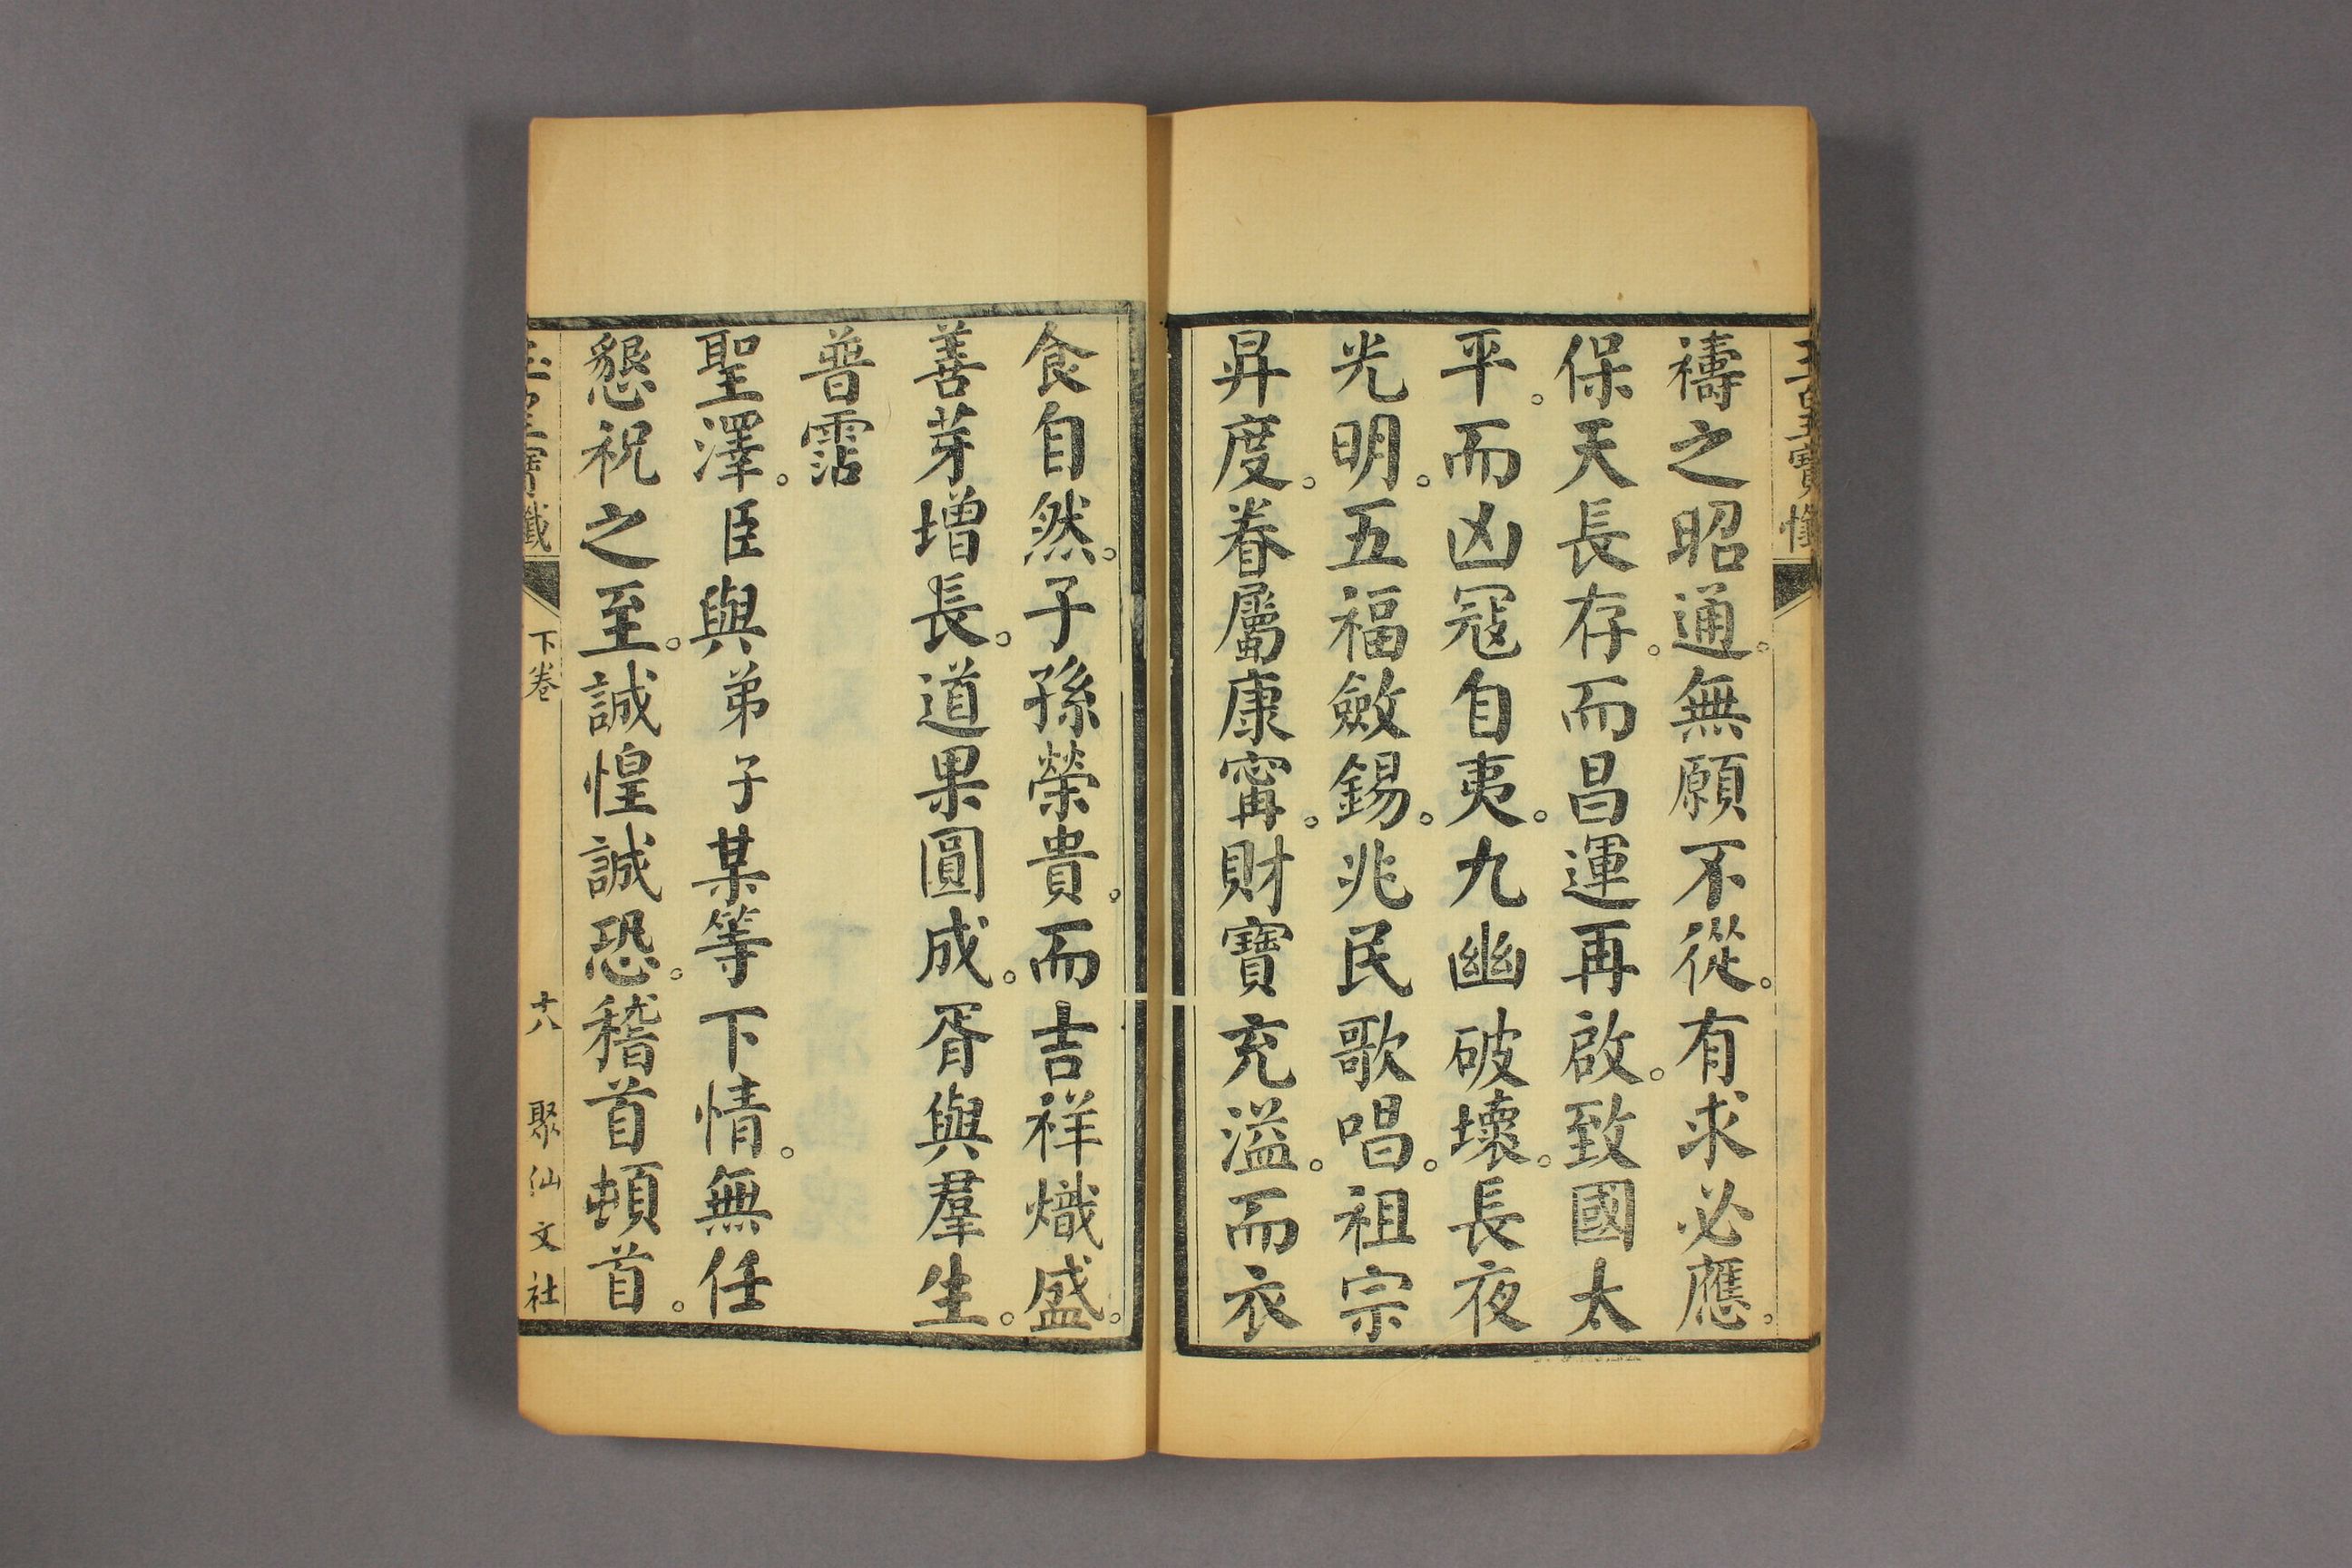 玉皇寶懺
禱之昭通。無願不從。有求必應。
保天長存。而昌運再啟。致國太
平。而凶冦自夷。九幽破壞。長夜
光明。五福斂錫。兆民歌唱。祖宗
昇度。眷屬康寗。財寶充溢。而衣
食自然。子孫榮貴。而吉祥熾盛。
善芽增長。道果圓成。胥與羣生。
普霑
聖澤。臣與弟子某等下情。無任
懇祝之至。誠惶誠恐。稽首頓首。
玉皇寶懺 下卷 十八 聚仙文社